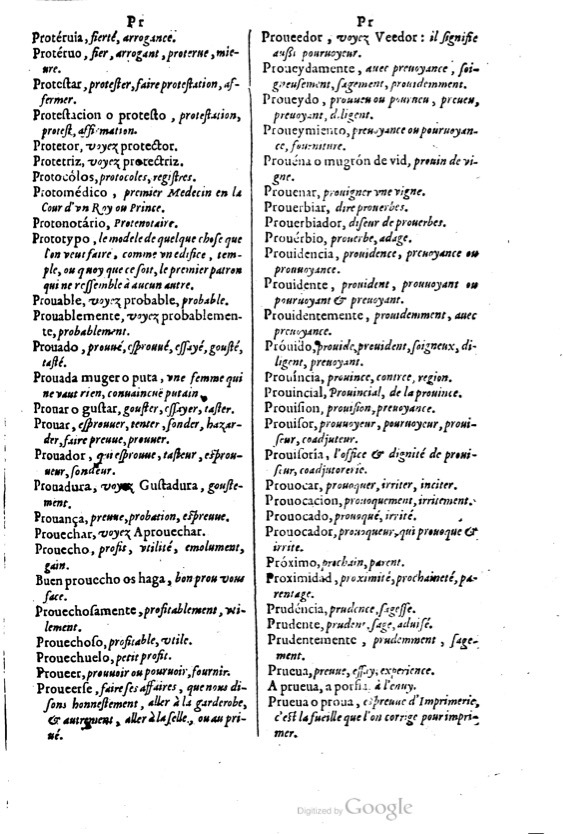 Pr
Protéruia, fierté, arrogance.
Protéruo, fier, arrogant, proterue, mie-
ure.
Protestar, protester, faire protestation, af-
fermer.
Protestacion o protesto, protestation,
protest, affirmation.
Protetor, voyez protector.
Protetriz, voyez protectriz.
Protocólos, protocoles, registres.
Protomédico, premier Medecin en la
Cour d'vn Roy ou Prince.
Protonotário, Protenotaire.
Prototypo, le modele de quelque chose que
l'on veut faire, comme vn edifice, tem-
ple, ou quoy que ce soit, le premier patron
qui ne ressemble à aucun autre.
Prouable, voyez probable, probable.
Prouablemente, voyez probablemen-
te, probablement.
Prouado, prouué, esprouué, essayé, gousté,
tasté.
Prouada muger o puta, vne femme qui
ne vaut rien, conuaincuë putain.
Prouar o gustar, gouster, essayer, taster.
Prouar, esprouuer, tenter, sonder, hazar-
der, faire preuue, prouuer.
Prouador, qui esprouue, tasteur, esprou-
ueur, sondeur.
Prouadura, voyez Gustadura, gouste-
ment.
Prouança, preuue, probation, espreuue.
Prouechar, voyez Aprouechar.
Prouecho, profit, vtilité, emolument,
gain.
Buen prouecho os haga, bon prou vous
face.
Prouechosamente, profitablement, vti-
lement.
Prouechoso, profitable, vtile.
Prouechuelo, petit profit.
Proueer, prouuoir ou pouruoir, fournir.
Proueerse, faire ses affaires, que nous di-
sons honnestement, aller à la garderobe,
& autrement, aller à la selle, ou au pri-
ué.
Pr
Proueedor, voyez Veedor: il signifie
aussi pouruoyeur.
Proueydamente, auec preuoyance, soi-
gneusement, sagement, prouidemment.
Proueydo, prouueu ou pourueu, preueu,
preuoyant, diligent.
Proueymiento, preuoyance ou pouruoyan-
ce, fourniture.
Prouéna o mugrón de vid, prouin de vi-
gne.
Prouenar, prouigner vne vigne.
Prouerbiar, dire prouerbes.
Prouerbiador, diseur de prouerbes.
Prouérbio, prouerbe, adage.
Prouidencia, prouidence, preuoyance ou
prouuoyance.
Prouidente, prouident, prouuoyant ou
pouruoyant & preuoyant.
Prouidentemente, prouidemment, auec
preuoyance.
Próuido, prouide, preuident, soigneux, di-
ligent, preuoyant.
Prouíncia, prouince, contree, region.
Prouincial, Prouincial, de la prouince.
Prouision, prouision, preuoyance.
Prouisor, prouuoyeur, pouruoyeur, proui-
seur, coadjuteur.
Prouisoria, l'office & dignité de proui-
seur, coadjutorerie.
Prouocar, prouoquer, irriter, inciter.
Prouocacion, prouoquement, irritement.
Prouocado, prouoqué, irrité.
Prouocador, prouoqueur, qui prouoque &
irrite.
Próximo, prochain, parent.
Proximidad, proximité, prochaineté, pa-
rentage.
Prudéncia, prudence, sagesse.
Prudente, prudent, sage, aduisé.
Prudentemente, prudemment, sage-
ment.
Prueua, preuue, essay, experience.
A prueua, a porfia, à l'enuy.
Prueua o proua, espreuue d'Imprimerie,
c'est la fueille que l'on corrige pour impri-
mer.
Digitized by Google